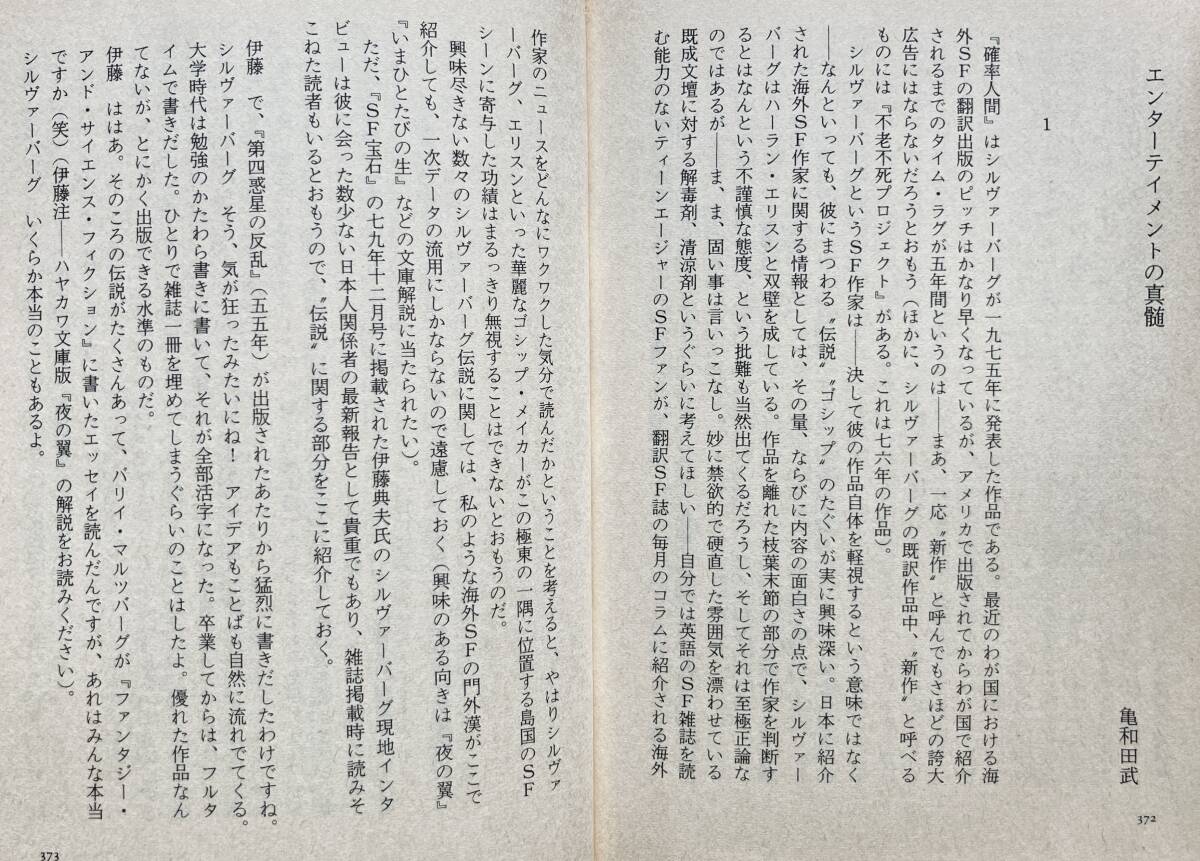 エンターテイメントの真髄
亀和田武
1
『確率人間』はシルヴァーバーグが一九七五年に発表した作品である。最近のわが国における海
外SFの翻訳出版のピッチはかなり早くなっているが、アメリカで出版されてからわが国で紹介
されるまでのタイム・ラグが五年間というのは――まあ、一応〝新作〟と呼んでもさほどの誇大
広告にはならないだろうとおもう（ほかに、シルヴァーバーグの既訳作品中、〝新作〟と呼べる
ものには『不老不死プロジェクト』がある。これは七六年の作品）。
シルヴァーバーグというSF作家は――決して彼の作品自体を軽視するという意味ではなく
――なんといっても、彼にまつわる〝伝説〟〝ゴシップ〟のたぐいが実に興味深い。日本に紹介
された海外SF作家に関する情報としては、その量、ならびに内容の面白さの点で、シルヴァー
バーグはハーラン・エリスンと双壁を成している。作品を離れた枝葉末節の部分で作家を判断す
るとはなんという不謹慎な態度、という批難も当然出てくるだろうし、そしてそれは至極正論な
のではあるが――ま、ま、固い事は言いっこなし。妙に禁欲的で硬直した雰囲気を漂わせている
既成文壇に対する解毒剤、清涼剤というぐらいに考えてほしい――自分では英語のSF雑誌を読
む能力のないティーンエージャーのSFファンが、翻訳SF誌の毎月のコラムに紹介される海外
372
作家のニュースをどんなにワクワクした気分で読んだかということを考えると、やはりシルヴァ
ーバーグ、エリスンといった華麗なゴシップ・メイカーがこの極東の一隅に位置する島国のSF
シーンに寄与した功績はまるっきり無視することはできないとおもうのだ。
興味尽きない数々のシルヴァーバーグ伝説に関しては、私のような海外SFの門外漢がここで
紹介しても、一次データの流用にしかならないので遠慮しておく（興味のある向きは『夜の翼』
『いまひとたびの生』などの文庫解説に当たられたい）。
ただ、『SF宝石』の七九年十二月号に掲載された伊藤典夫氏のシルヴァーバーグ現地インタ
ビューは彼に会った数少ない日本人関係者の最新報告として貴重でもあり、雑誌掲載時に読みそ
こねた読者もいるとおもうので、〝伝説〟に関する部分をここに紹介しておく。
伊藤　で、『第四惑星の反乱』（五五年）が出版されたあたりから猛烈に書きだしたわけですね。
シルヴァーバーグ　そう、気が狂ったみたいにね！　アイデアもことばも自然に流れでてくる。
大学時代は勉強のかたわら書きに書いて、それが全部活字になった。卒業してからは、フルタ
イムで書きだした。ひとりで雑誌一冊を埋めてしまうぐらいのことはしたよ。優れた作品なん
てないが、とにかく出版できる水準のものだ。
伊藤　ははあ。そのころの伝説がたくさんあって、バリイ・マルツバーグが『ファンタジー・
アンド・サイエンス・フィクション』に書いたエッセイを読んだんですが、あれはみんな本当
ですか（笑）（伊藤注――ハヤカワ文庫版『夜の翼』の解説をお読みください）。
シルヴァーバーグ　いくらか本当のこともあるよ。
373